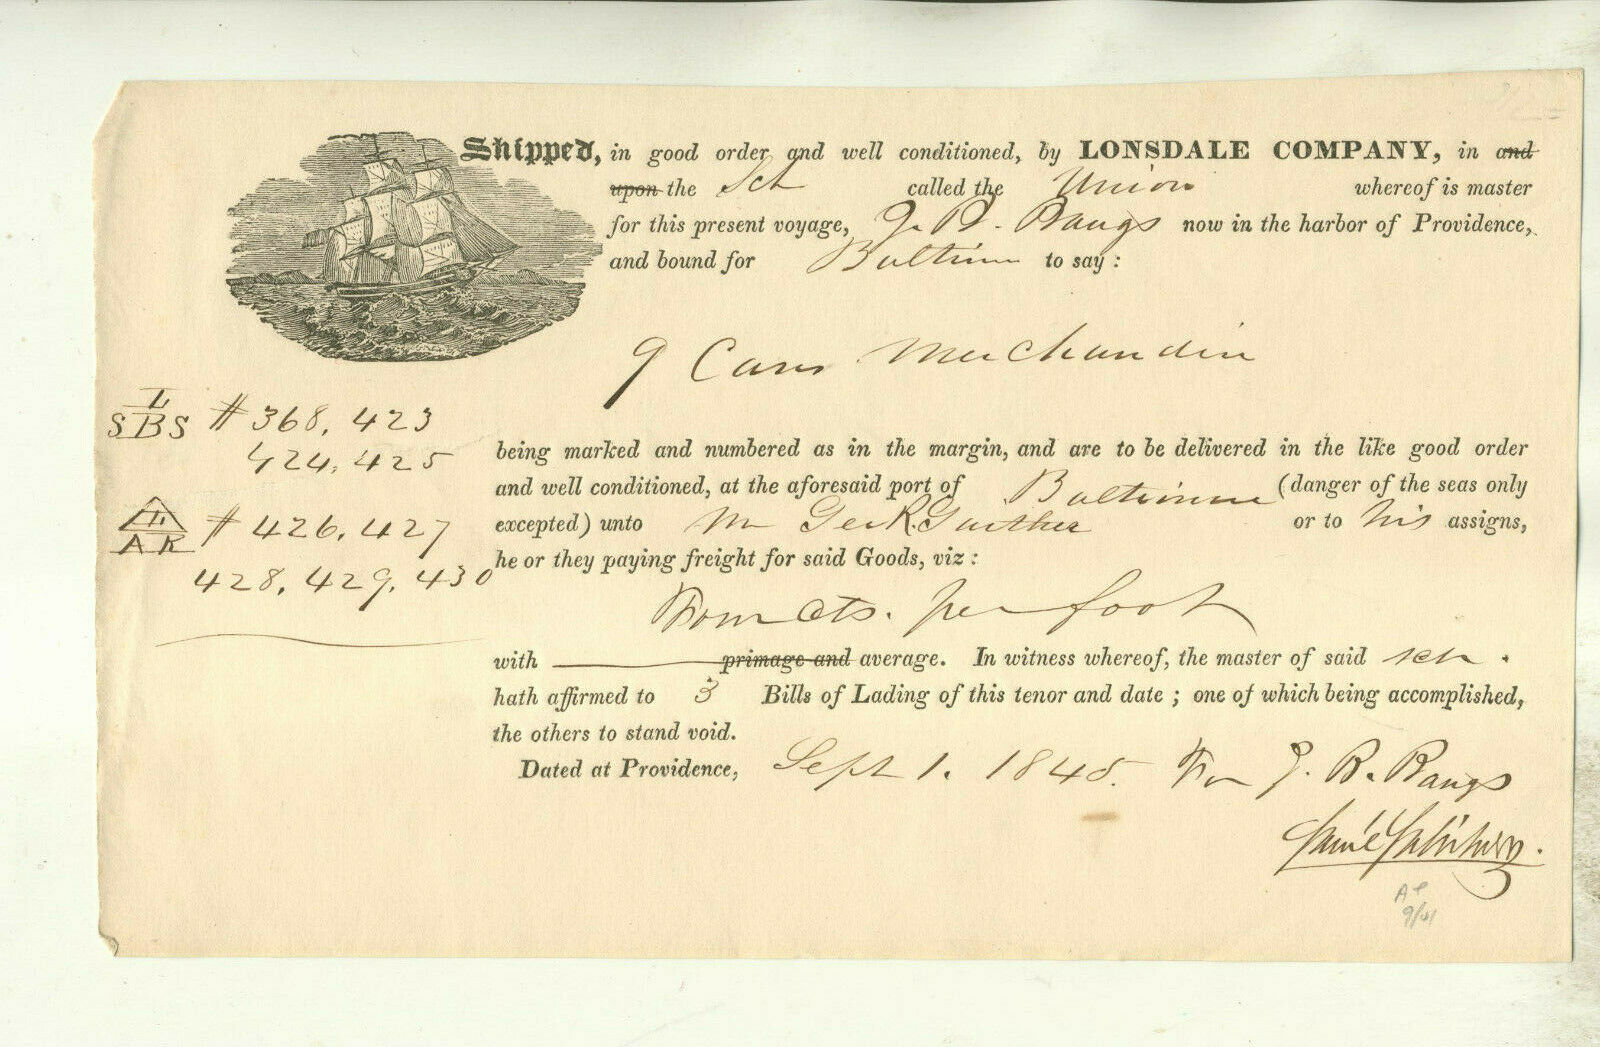 Shipped, in good order and well conditioned, by LONSDALE COMPANY, in and
upon the Sch called the Union whereof is master
for this present voyage, J. B. Bangs now in the harbor of Providence,
and bound for Baltimore to say:
9 Cases Merchandise
L
S B S # 368, 423
424, 425
being marked and numbered as in the margin, and are to be delivered in the like good order
and well conditioned, at the aforesaid port of Baltimore (danger of the seas only
L
A R # 426, 427
428, 429, 430
excepted) unto Geo R. Gaither or to his assigns,
he or they paying freight for said Goods, viz:
Four cts. per foot
with primage and average. In witness whereof, the master of said sch.
hath affirmed to 3 Bills of Lading of this tenor and date; one of which being accomplished,
the others to stand void.
Dated at Providence, Sept 1. 1845. For J. B. Bangs